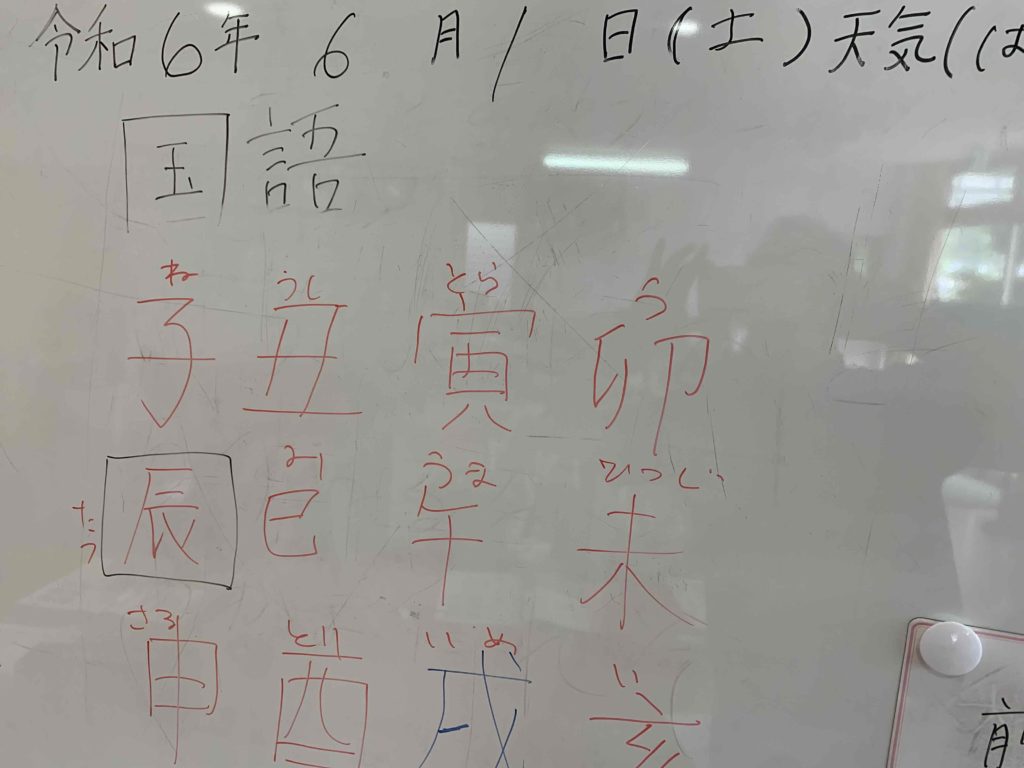 令和6年 6 月 1 日(土)天気(は
国語
ね うし とら う
子 丑 寅 卯
み うま ひつじ
たつ 辰 巳 午 未
さる とり いぬ い
申 酉 戌 亥
前